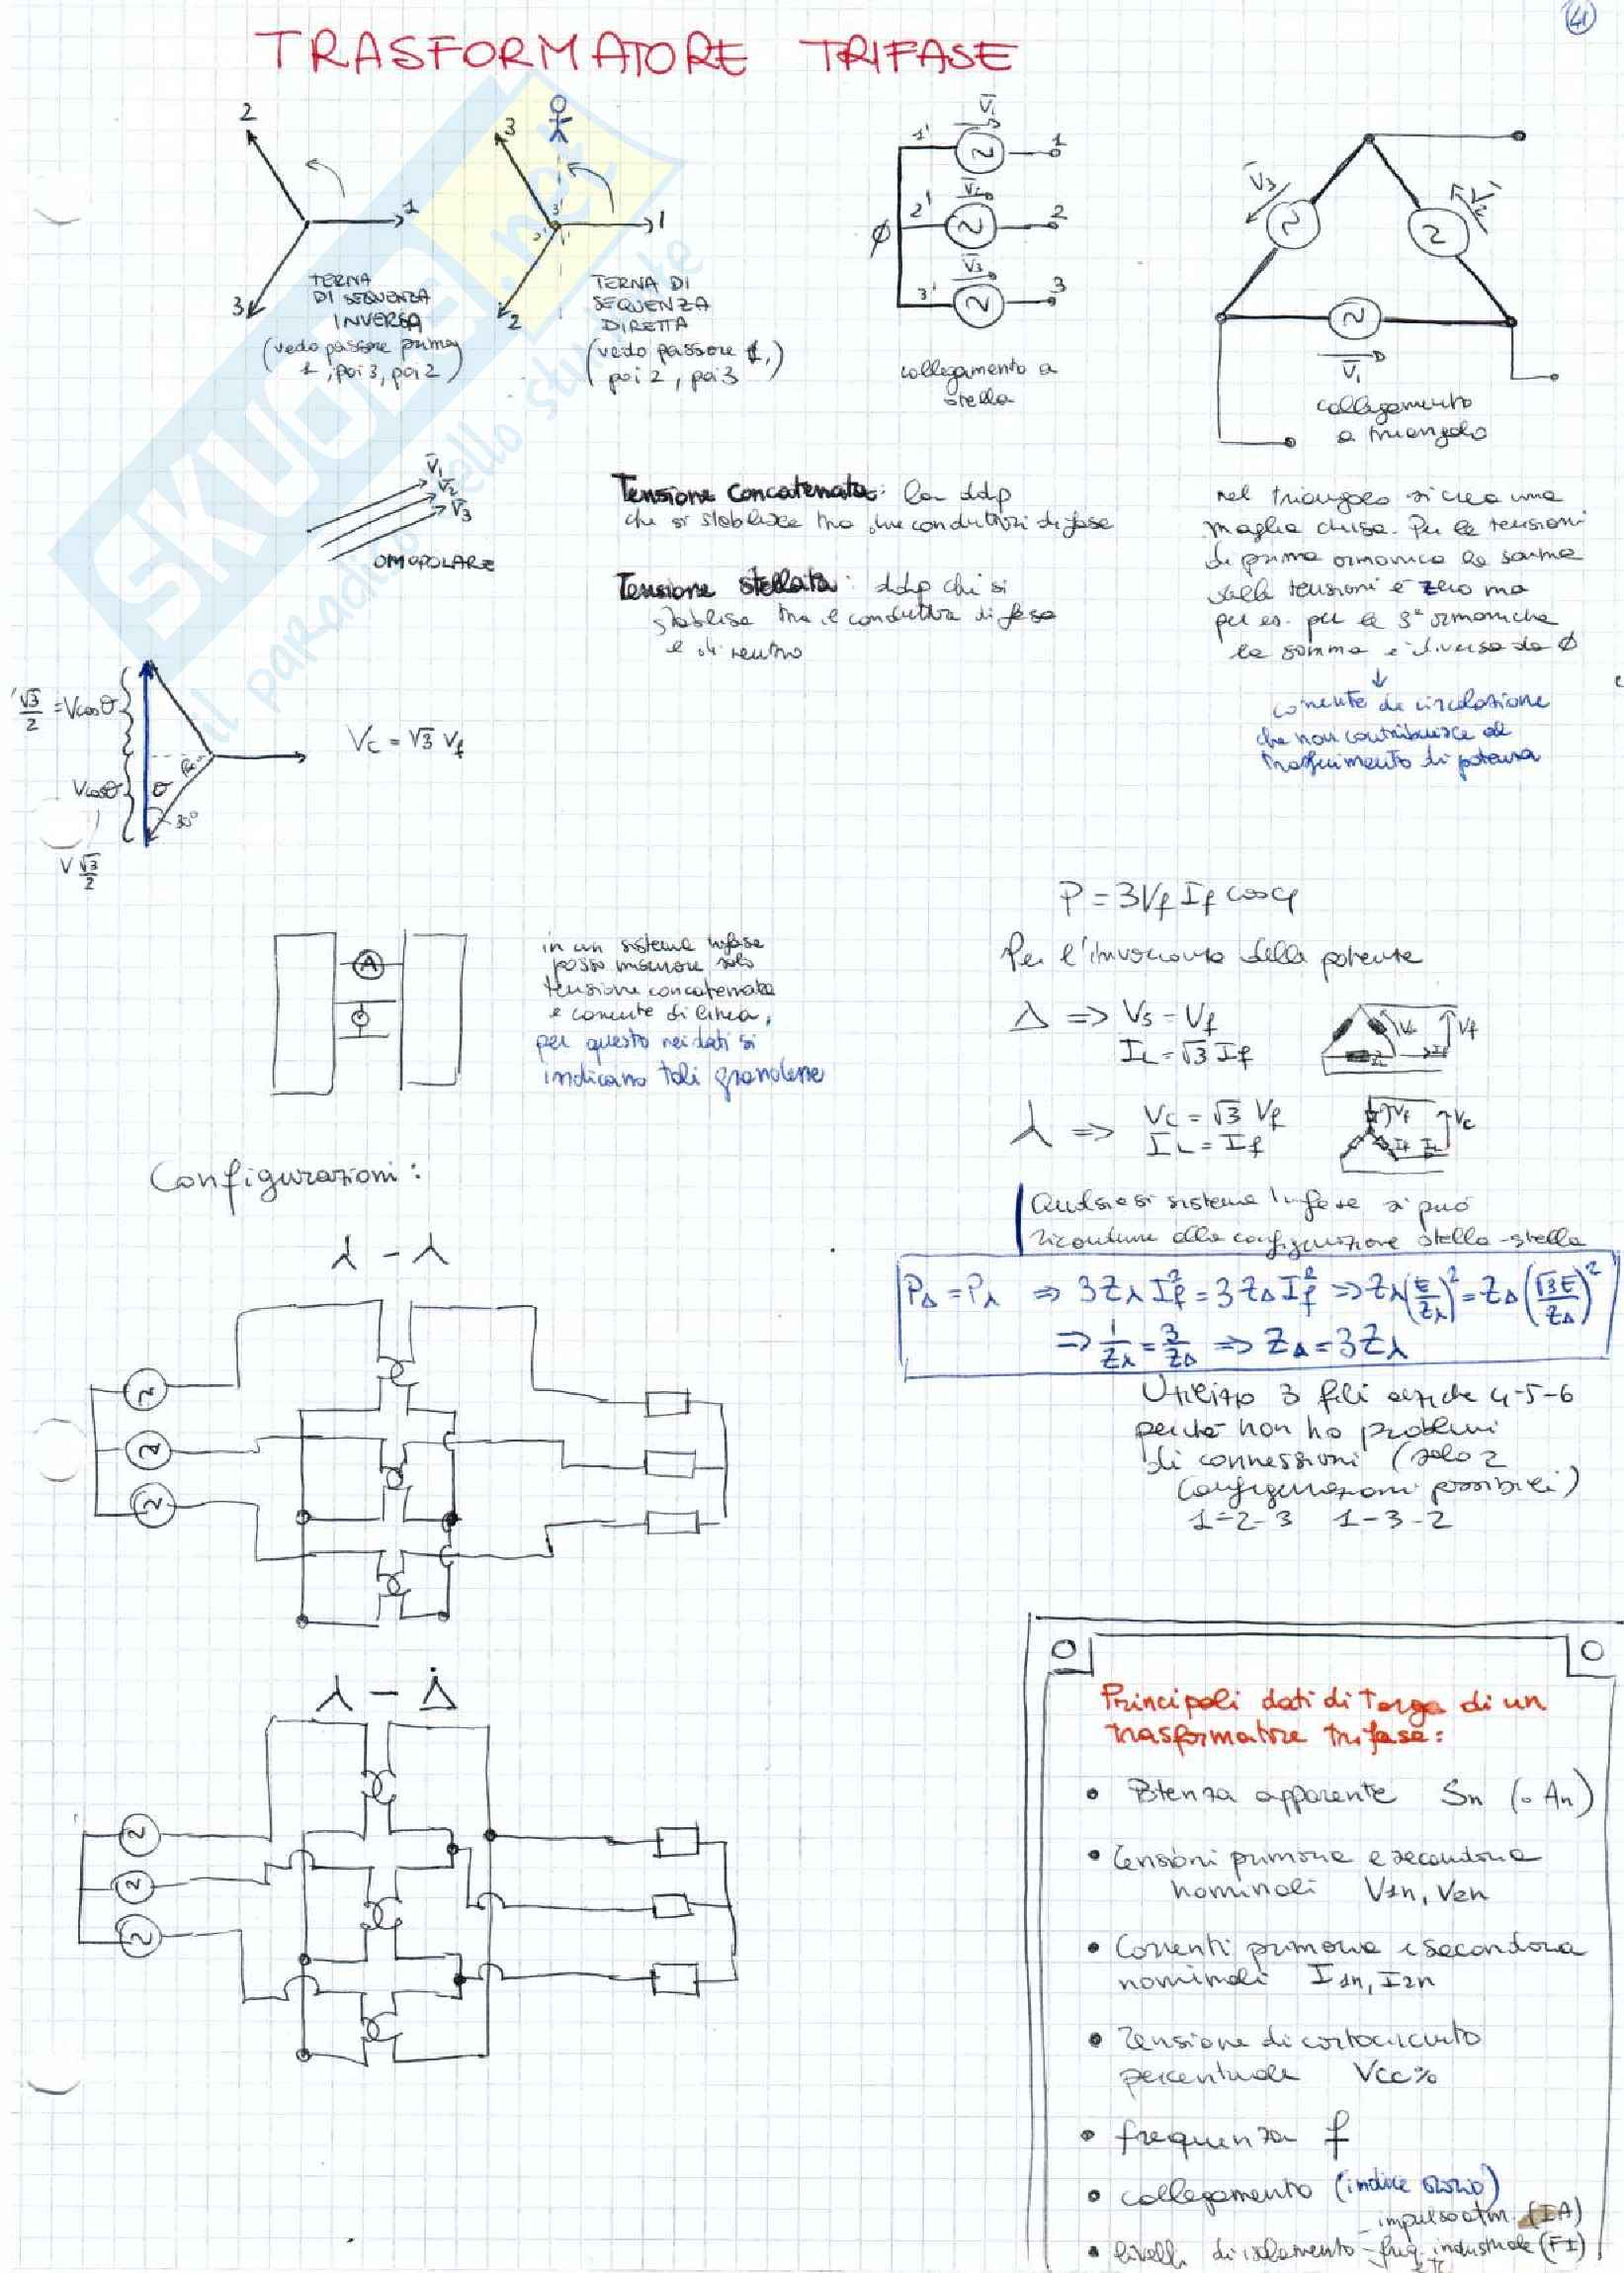 41
TRASFORMATORE TRIFASE
2
1
3
TERNA
DI SEQUENZA
INVERSA
(vedo passare prima
1, poi 3, poi 2)
3
1
2
3'
2'
1'
TERNA DI
SEQUENZA
DIRETTA
(vedo passare 1,)
poi 2, poi 3
V1
1' 1
V2
2' 2
Ø
V3
3' 3
collegamento a
stella
V3
V2
V1
collegamento
a triangolo
SKUOLA.net
il paradiso dello studente
V1
V2
V3
OMOPOLARE
Tensione concatenata: la ddp
che si stabilisce tra due conduttori di fase
Tensione stellata: ddp che si
stabilisce tra il conduttore di fase
e di neutro
nel triangolo si crea una
maglia chiusa. Per le tensioni
di prima armonica la somma
delle tensioni è zero ma
per es. per le 3ª armoniche
la somma è diversa da Ø
↓
corrente di circolazione
che non contribuisce al
trasferimento di potenza
√3/2 = Vcosθ
Vcosθ
θ
30°
V √3/2
Vc = √3 Vf
A
in un sistema trifase
posso misurare solo
tensione concatenata
e corrente di linea,
per questo nei dati si
indicano tali grandezze
P = 3Vf If cosφ
Per l'invarianza della potenza
Δ ⇒ Vs = Vf
IL = √3 If
Vf
λ ⇒ Vc = √3 Vf
IL = If
Vf
Vc
If IL
Qualsiasi sistema trifase si può
ricondurre alla configurazione stella-stella
PΔ = Pλ ⇒ 3Zλ If² = 3ZΔ If² ⇒ Zλ(E/Zλ)² = ZΔ(√3E/ZΔ)²
⇒ 1/Zλ = 3/ZΔ ⇒ ZΔ = 3Zλ
Utilizzo 3 fili anziché 4-5-6
perché non ho problemi
di connessioni (solo 2
configurazioni possibili)
1-2-3 1-3-2
Configurazioni:
λ - λ
λ - Δ
Principali dati di targa di un
trasformatore trifase:
• Potenza apparente Sn (o An)
• Tensioni primaria e secondaria
nominali V1n, V2n
• Correnti primaria e secondaria
nominali I1n, I2n
• Tensione di cortocircuito
percentuale Vcc%
• frequenza f
• collegamento (indice orario)
- impulso atm. (IA)
• livelli di isolamento - freq. industriale (FI)
etc